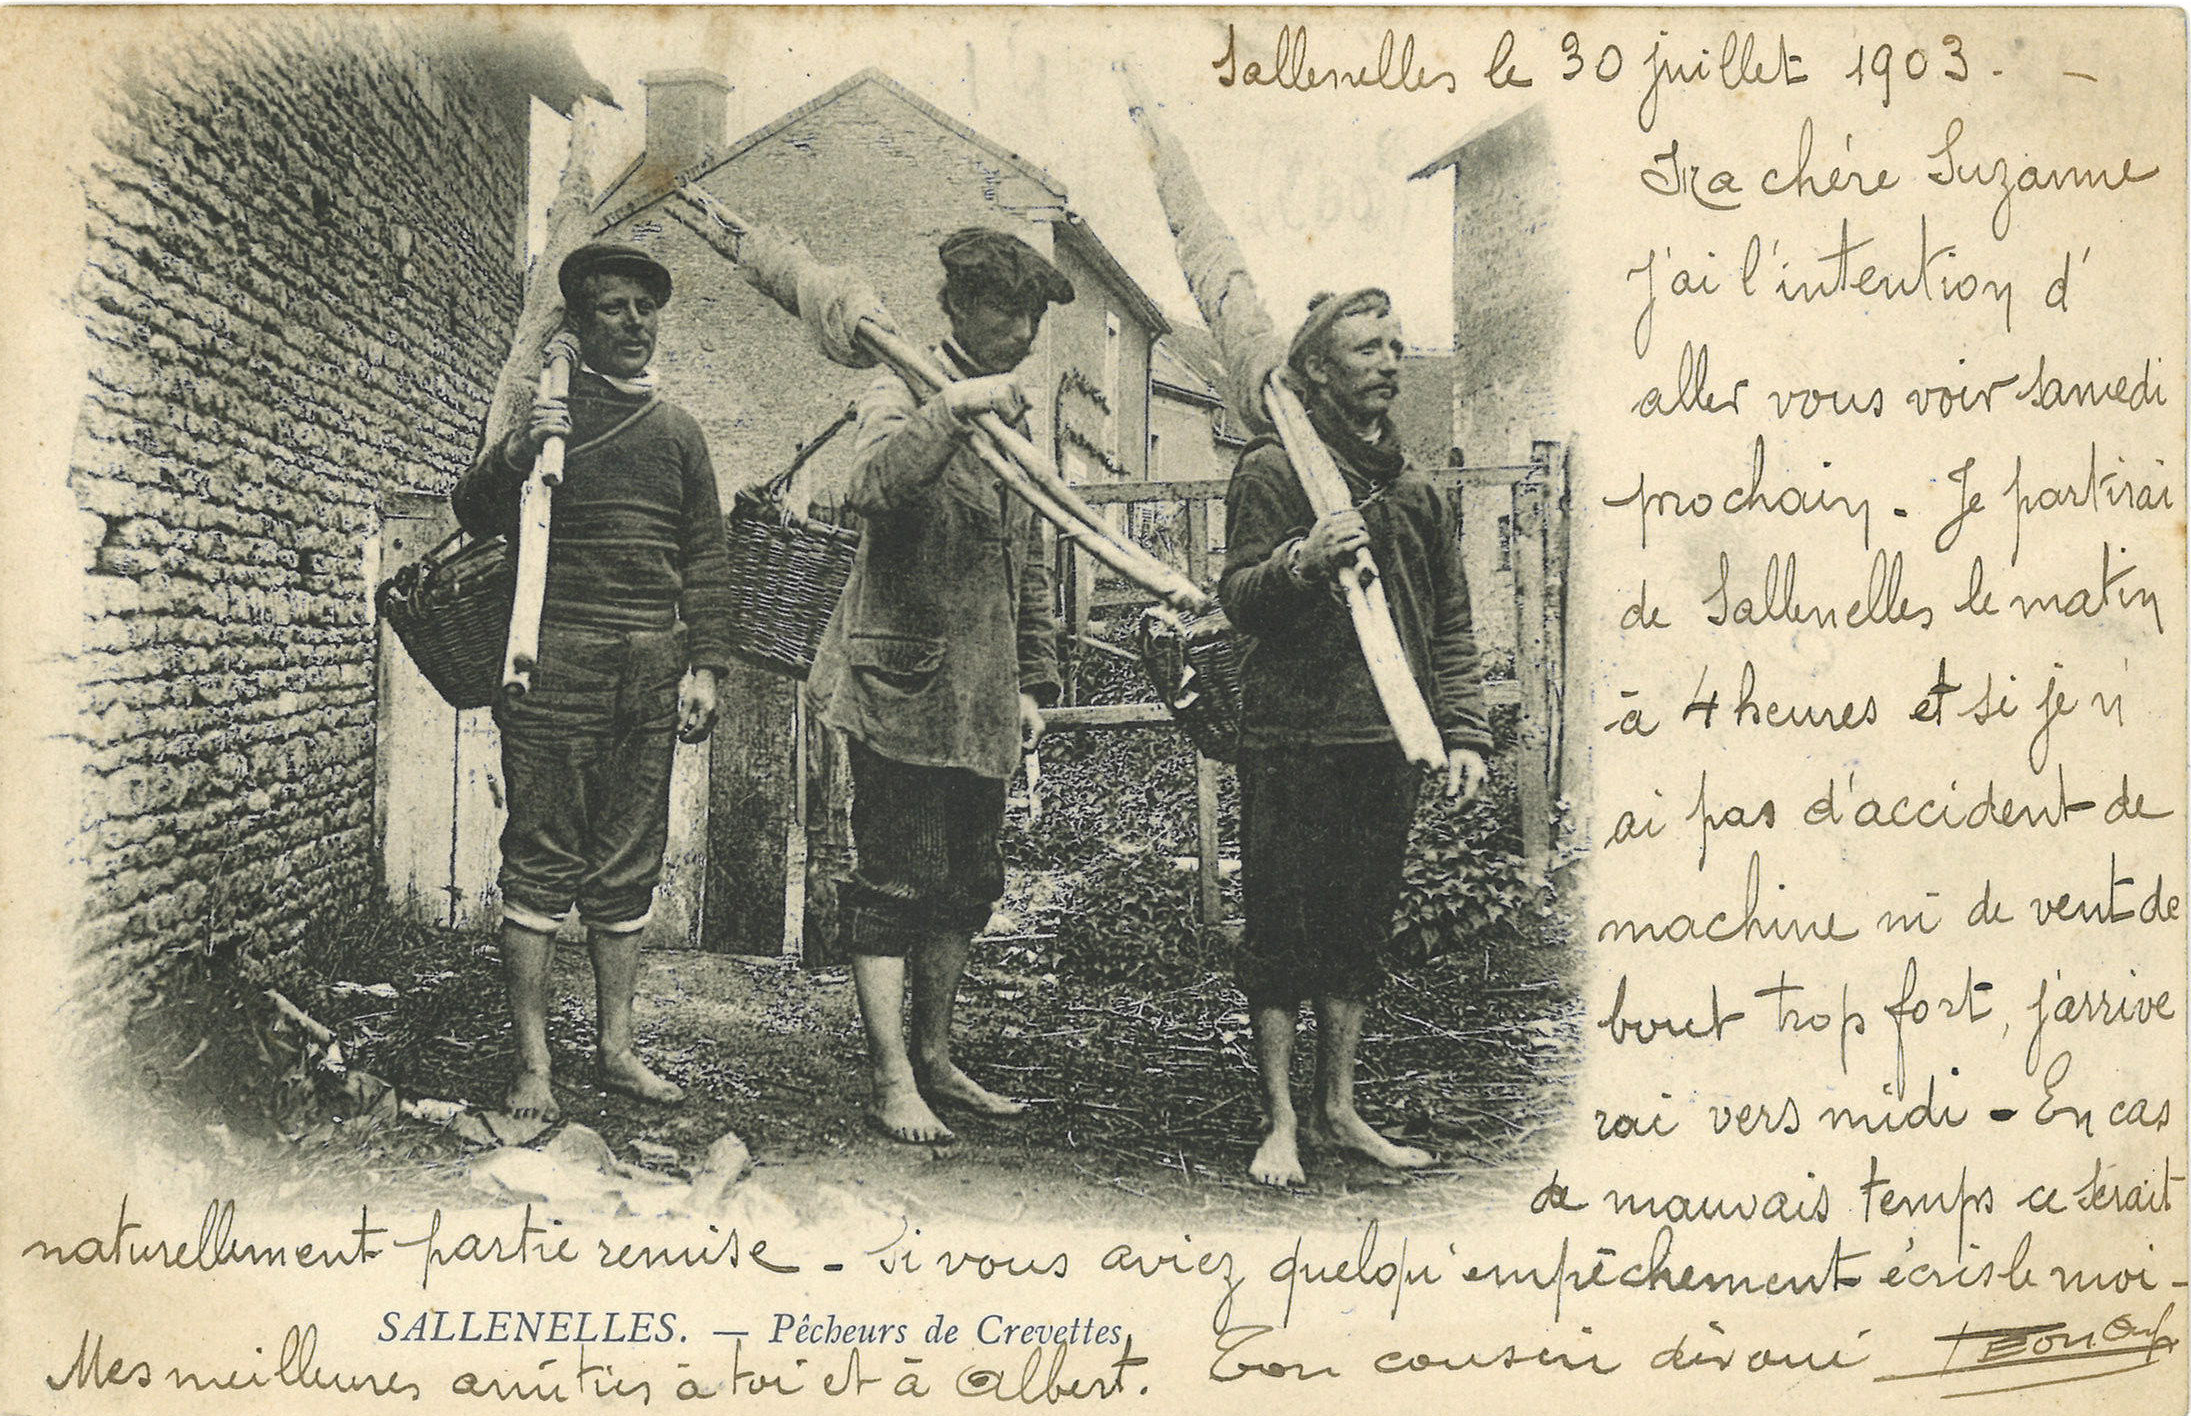 Sallenelles le 30 juillet 1903. -
Ma chère Suzanne
J'ai l'intention d'
aller vous voir samedi
prochain. Je partirai
de Sallenelles le matin
à 4 heures et si je n'
ai pas d'accident de
machine ni de vent de
bout trop fort, j'arrive
rai vers midi - En cas
de mauvais temps ce serait
naturellement partie remise - Si vous aviez quelqu'empêchement écris le moi -
SALLENELLES. — Pêcheurs de Crevettes
Mes meilleures amitiés à toi et à Albert. Ton cousin dévoué